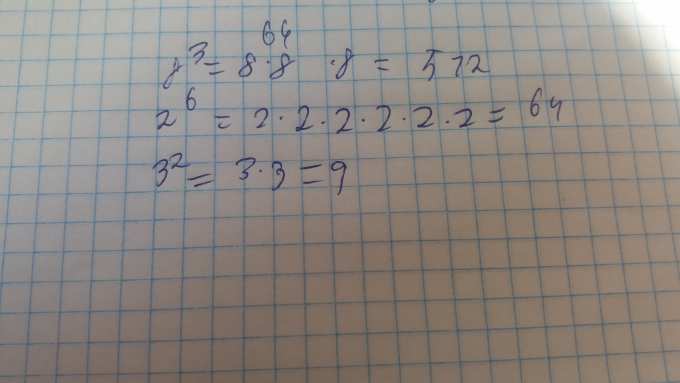 64
8³ = 8 · 8 · 8 = 512
2⁶ = 2 · 2 · 2 · 2 · 2 · 2 = 64
3² = 3 · 3 = 9